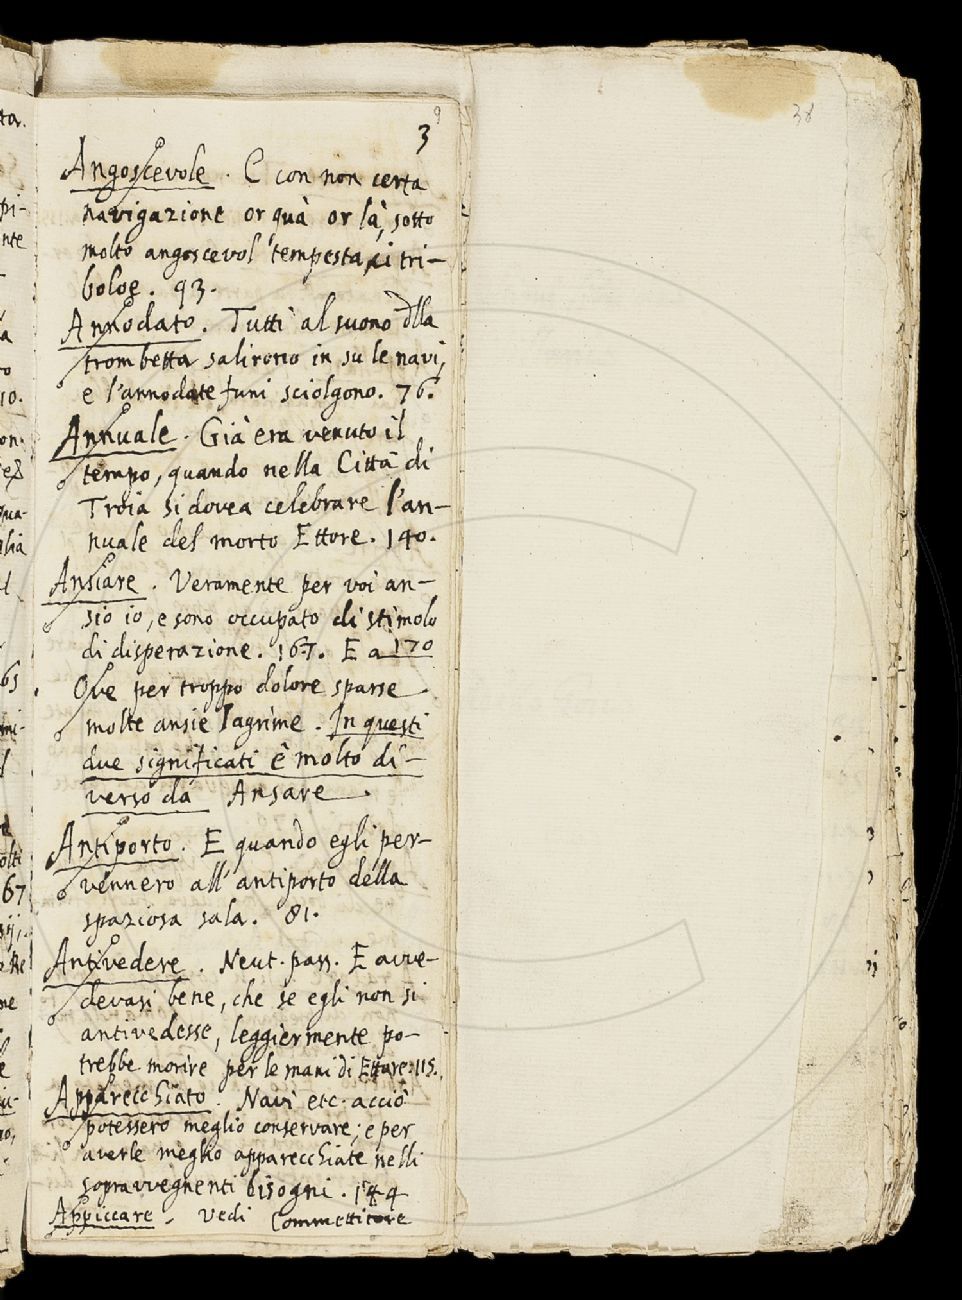 9
3
38
Angoscevole. E con non certa
navigazione or quà or là, sotto
molto angoscevol tempesta, si tri-
boloe. 93.
Annodato. Tutti al suono dlla
trombetta salirono in su le navi,
e l'annodate funi sciolgono. 76.
Annuale. Già era venuto il
tempo, quando nella Città di
Troia si dovea celebrare l'an-
nuale del morto Ettore. 140.
Ansiare. Veramente per voi an-
sio io, e sono occupato di stimolo
di disperazione. 167. E a 170
Ove per troppo dolore sparse
molte ansie lagrime. In questi
due significati è molto di-
verso da Ansare.
Antiporto. E quando egli per-
vennero all'antiporto della
spaziosa sala. 81.
Antivedere. Neut. pass. E avve-
devasi bene, che se egli non si
antivedesse, leggiermente po-
trebbe morire per le mani di Ettore. 115.
Apparecchiato. Navi etc. acciò
potessero meglio conservare; e per
averle meglio apparecchiate nelli
sopravvegnenti bisogni. 144
Appiccare. Vedi Commettitore